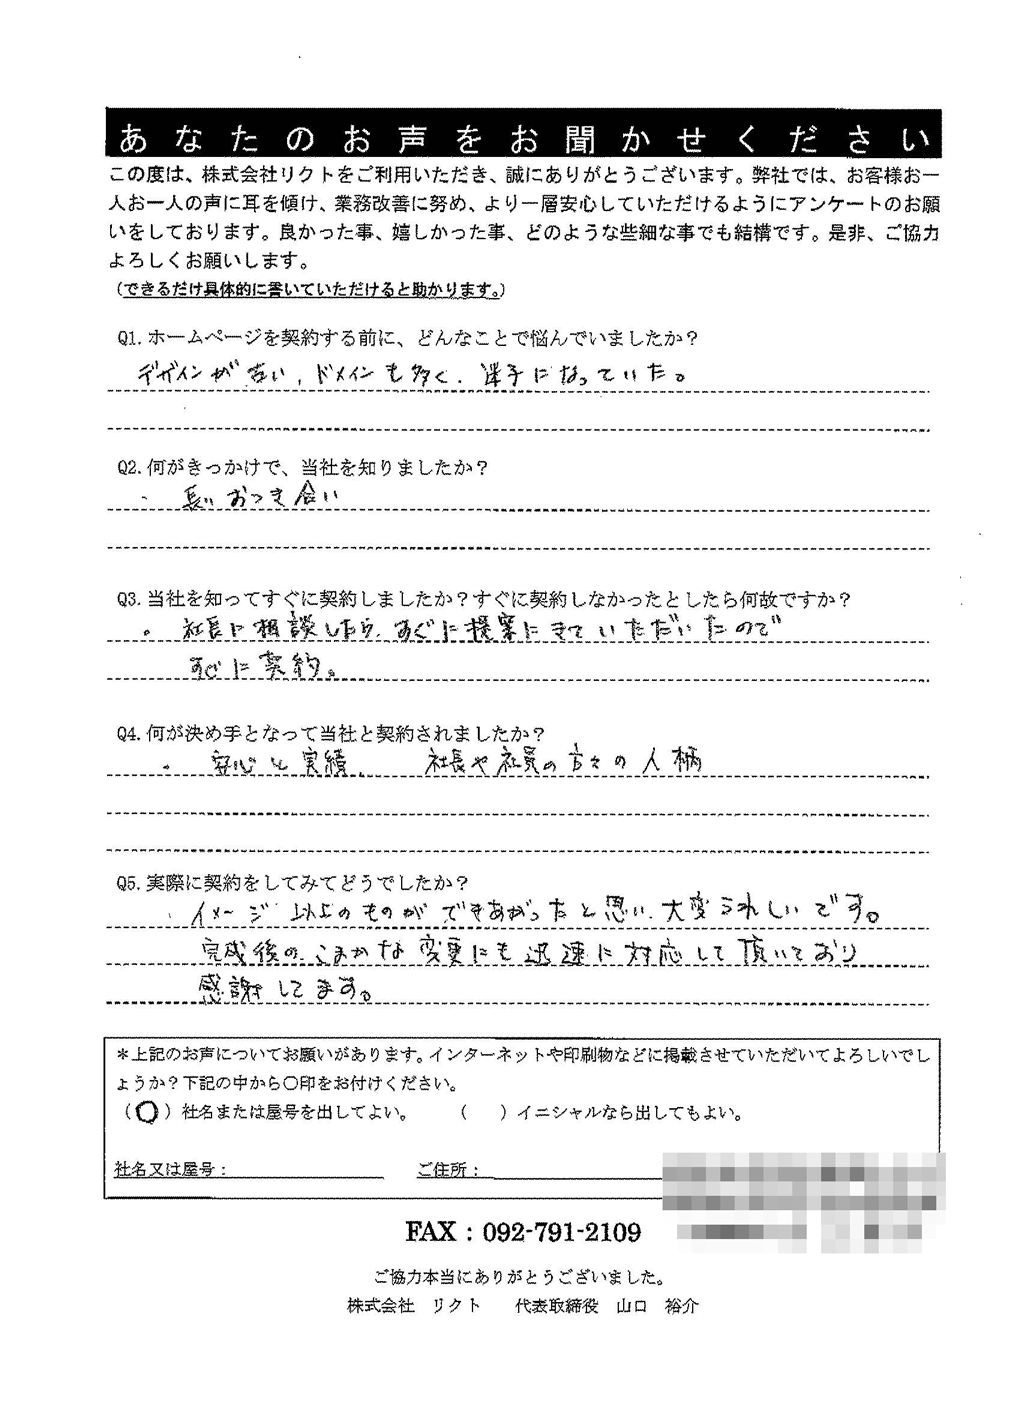 あなたのお声をお聞かせください
この度は、株式会社リクトをご利用いただき、誠にありがとうございます。弊社では、お客様お一
人お一人の声に耳を傾け、業務改善に努め、より一層安心していただけるようにアンケートのお願
いをしております。良かった事、嬉しかった事、どのような些細な事でも結構です。是非、ご協力
よろしくお願いします。
（できるだけ具体的に書いていただけると助かります。）
Q1.ホームページを契約する前に、どんなことで悩んでいましたか？
デザインが古い、ドメインも多く、迷子になっていた。
Q2.何がきっかけで、当社を知りましたか？
・長いおつき合い
Q3.当社を知ってすぐに契約しましたか？すぐに契約しなかったとしたら何故ですか？
・社長に相談したら、すぐに提案にきていただいたので
すぐに契約。
Q4.何が決め手となって当社と契約されましたか？
・安心と実績、社長や社員の方々の人柄
Q5.実際に契約をしてみてどうでしたか？
・イメージ以上のものができあがったと思い、大変うれしいです。
完成後のこまかな変更にも迅速に対応して頂いており
感謝してます。
＊上記のお声についてお願いがあります。インターネットや印刷物などに掲載させていただいてよろしいでし
ょうか？下記の中から〇印をお付けください。
（〇）社名または屋号を出してよい。　（　）イニシャルなら出してもよい。
社名又は屋号：　ご住所：
FAX：092-791-2109
ご協力本当にありがとうございました。
株式会社　リクト　代表取締役　山口　裕介